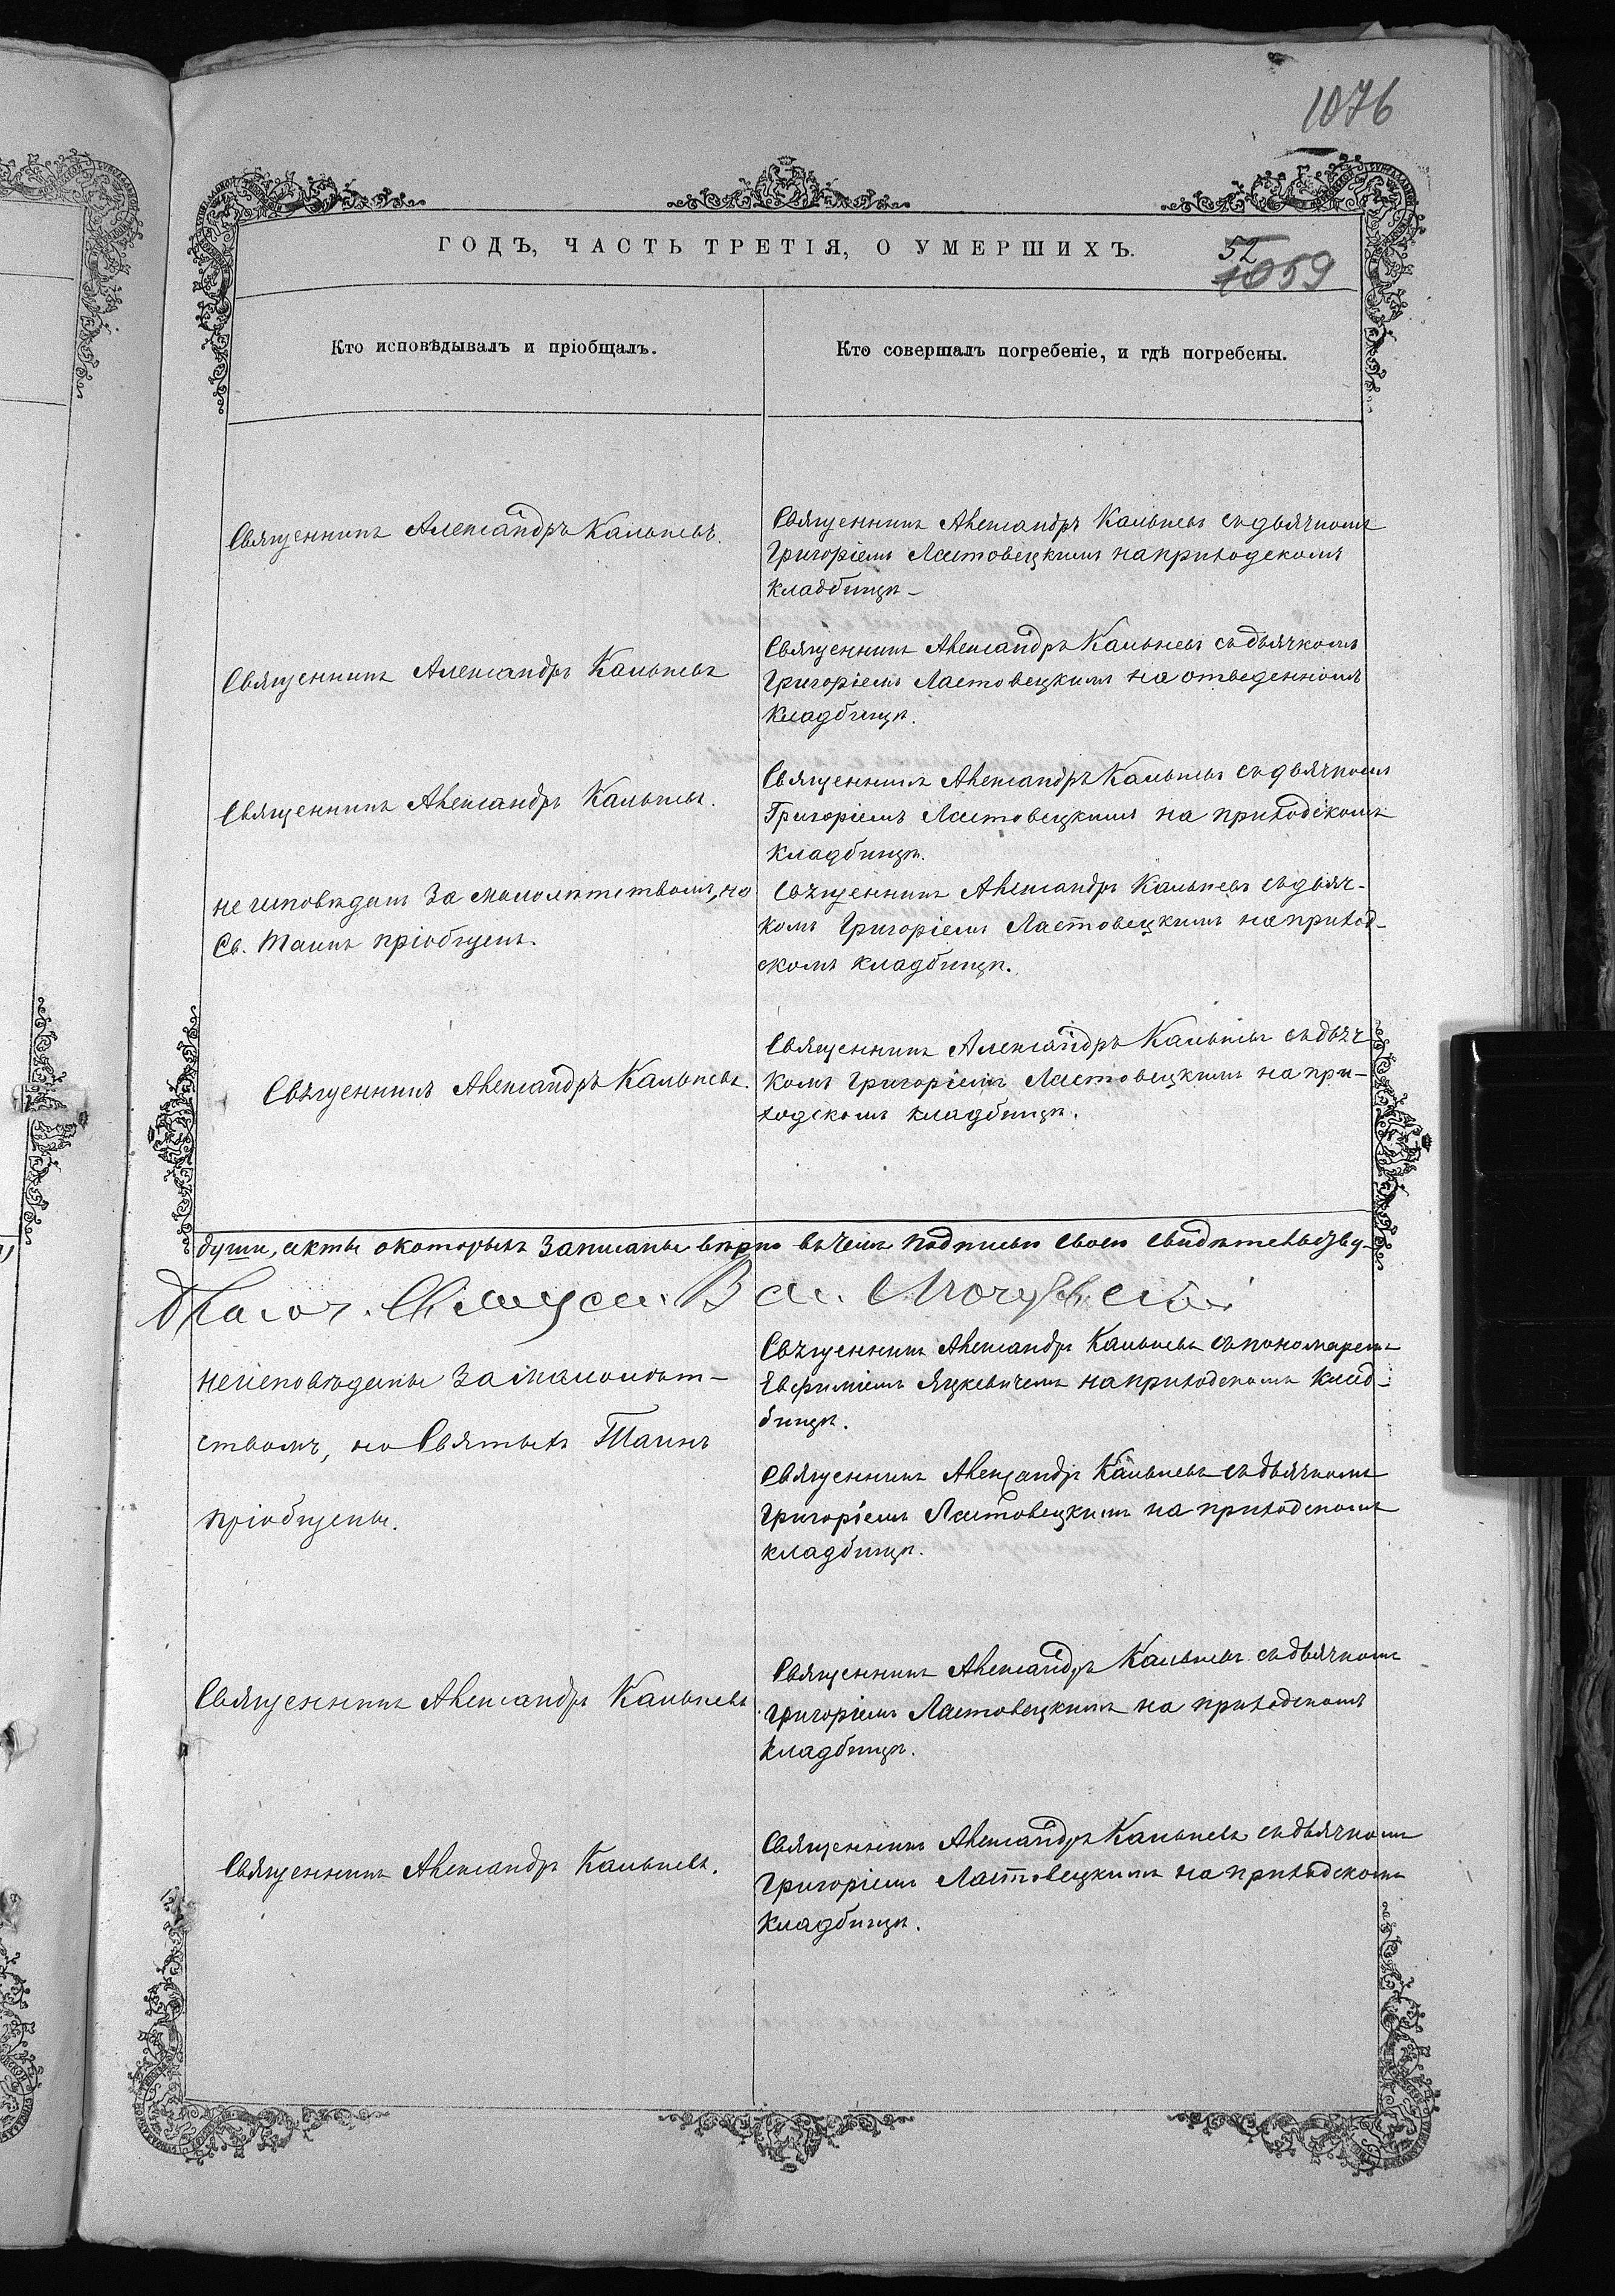 1076
ГОДЪ, ЧАСТЬ ТРЕТІЯ, О УМЕРШИХЪ.
52
1059
Кто исповѣдывалъ и пріобщалъ.
Кто совершалъ погребеніе, и гдѣ погребены.
Священникъ Александръ Кальневъ.
Священникъ Александръ Кальневъ съ дьячкомъ
Григоріемъ Ластовецкимъ на приходскомъ
кладбищѣ-
Священникъ Александръ Кальневъ
Священникъ Александръ Кальневъ съ дьячкомъ
Григоріемъ Ластовецкимъ на отведенномъ
кладбищѣ.
Священникъ Александръ Кальневъ.
Священникъ Александръ Кальневъ съ дьячкомъ
Григоріемъ Ластовецкимъ на приходскомъ
кладбищѣ.
не исповѣданъ за малолѣтствомъ, но
Св. Таинъ пріобщенъ.
Священникъ Александръ Кальневъ съ дьяч-
комъ Григоріемъ Ластовецкимъ на приход-
скомъ кладбищѣ.
Священникъ Александръ Кальневъ.
Священникъ Александръ Кальневъ съ дьяч
комъ Григоріемъ Ластовецкимъ на при-
ходскомъ кладбищѣ.
души, акты о которыхъ записаны вѣрно въ чемъ подписью своею свидѣтельству-
не исповѣданы за малолѣт-
ствомъ, но Святыхъ Таинъ
пріобщены.
Священникъ Александръ Кальневъ съ пономаремъ
Евфиміемъ Яцкевичемъ на приходскомъ клад-
бищѣ.
Священникъ Александръ Кальневъ съ дьячкомъ
Григоріемъ Ластовецкимъ на приходскомъ
кладбищѣ.
Священникъ Александръ Кальневъ
Священникъ Александръ Кальневъ съ дьячкомъ
Григоріемъ Ластовецкимъ на приходскомъ
кладбищѣ.
Священникъ Александръ Кальневъ.
Священникъ Александръ Кальневъ съ дьячкомъ
Григоріемъ Ластовецкимъ на приходскомъ
кладбищѣ.